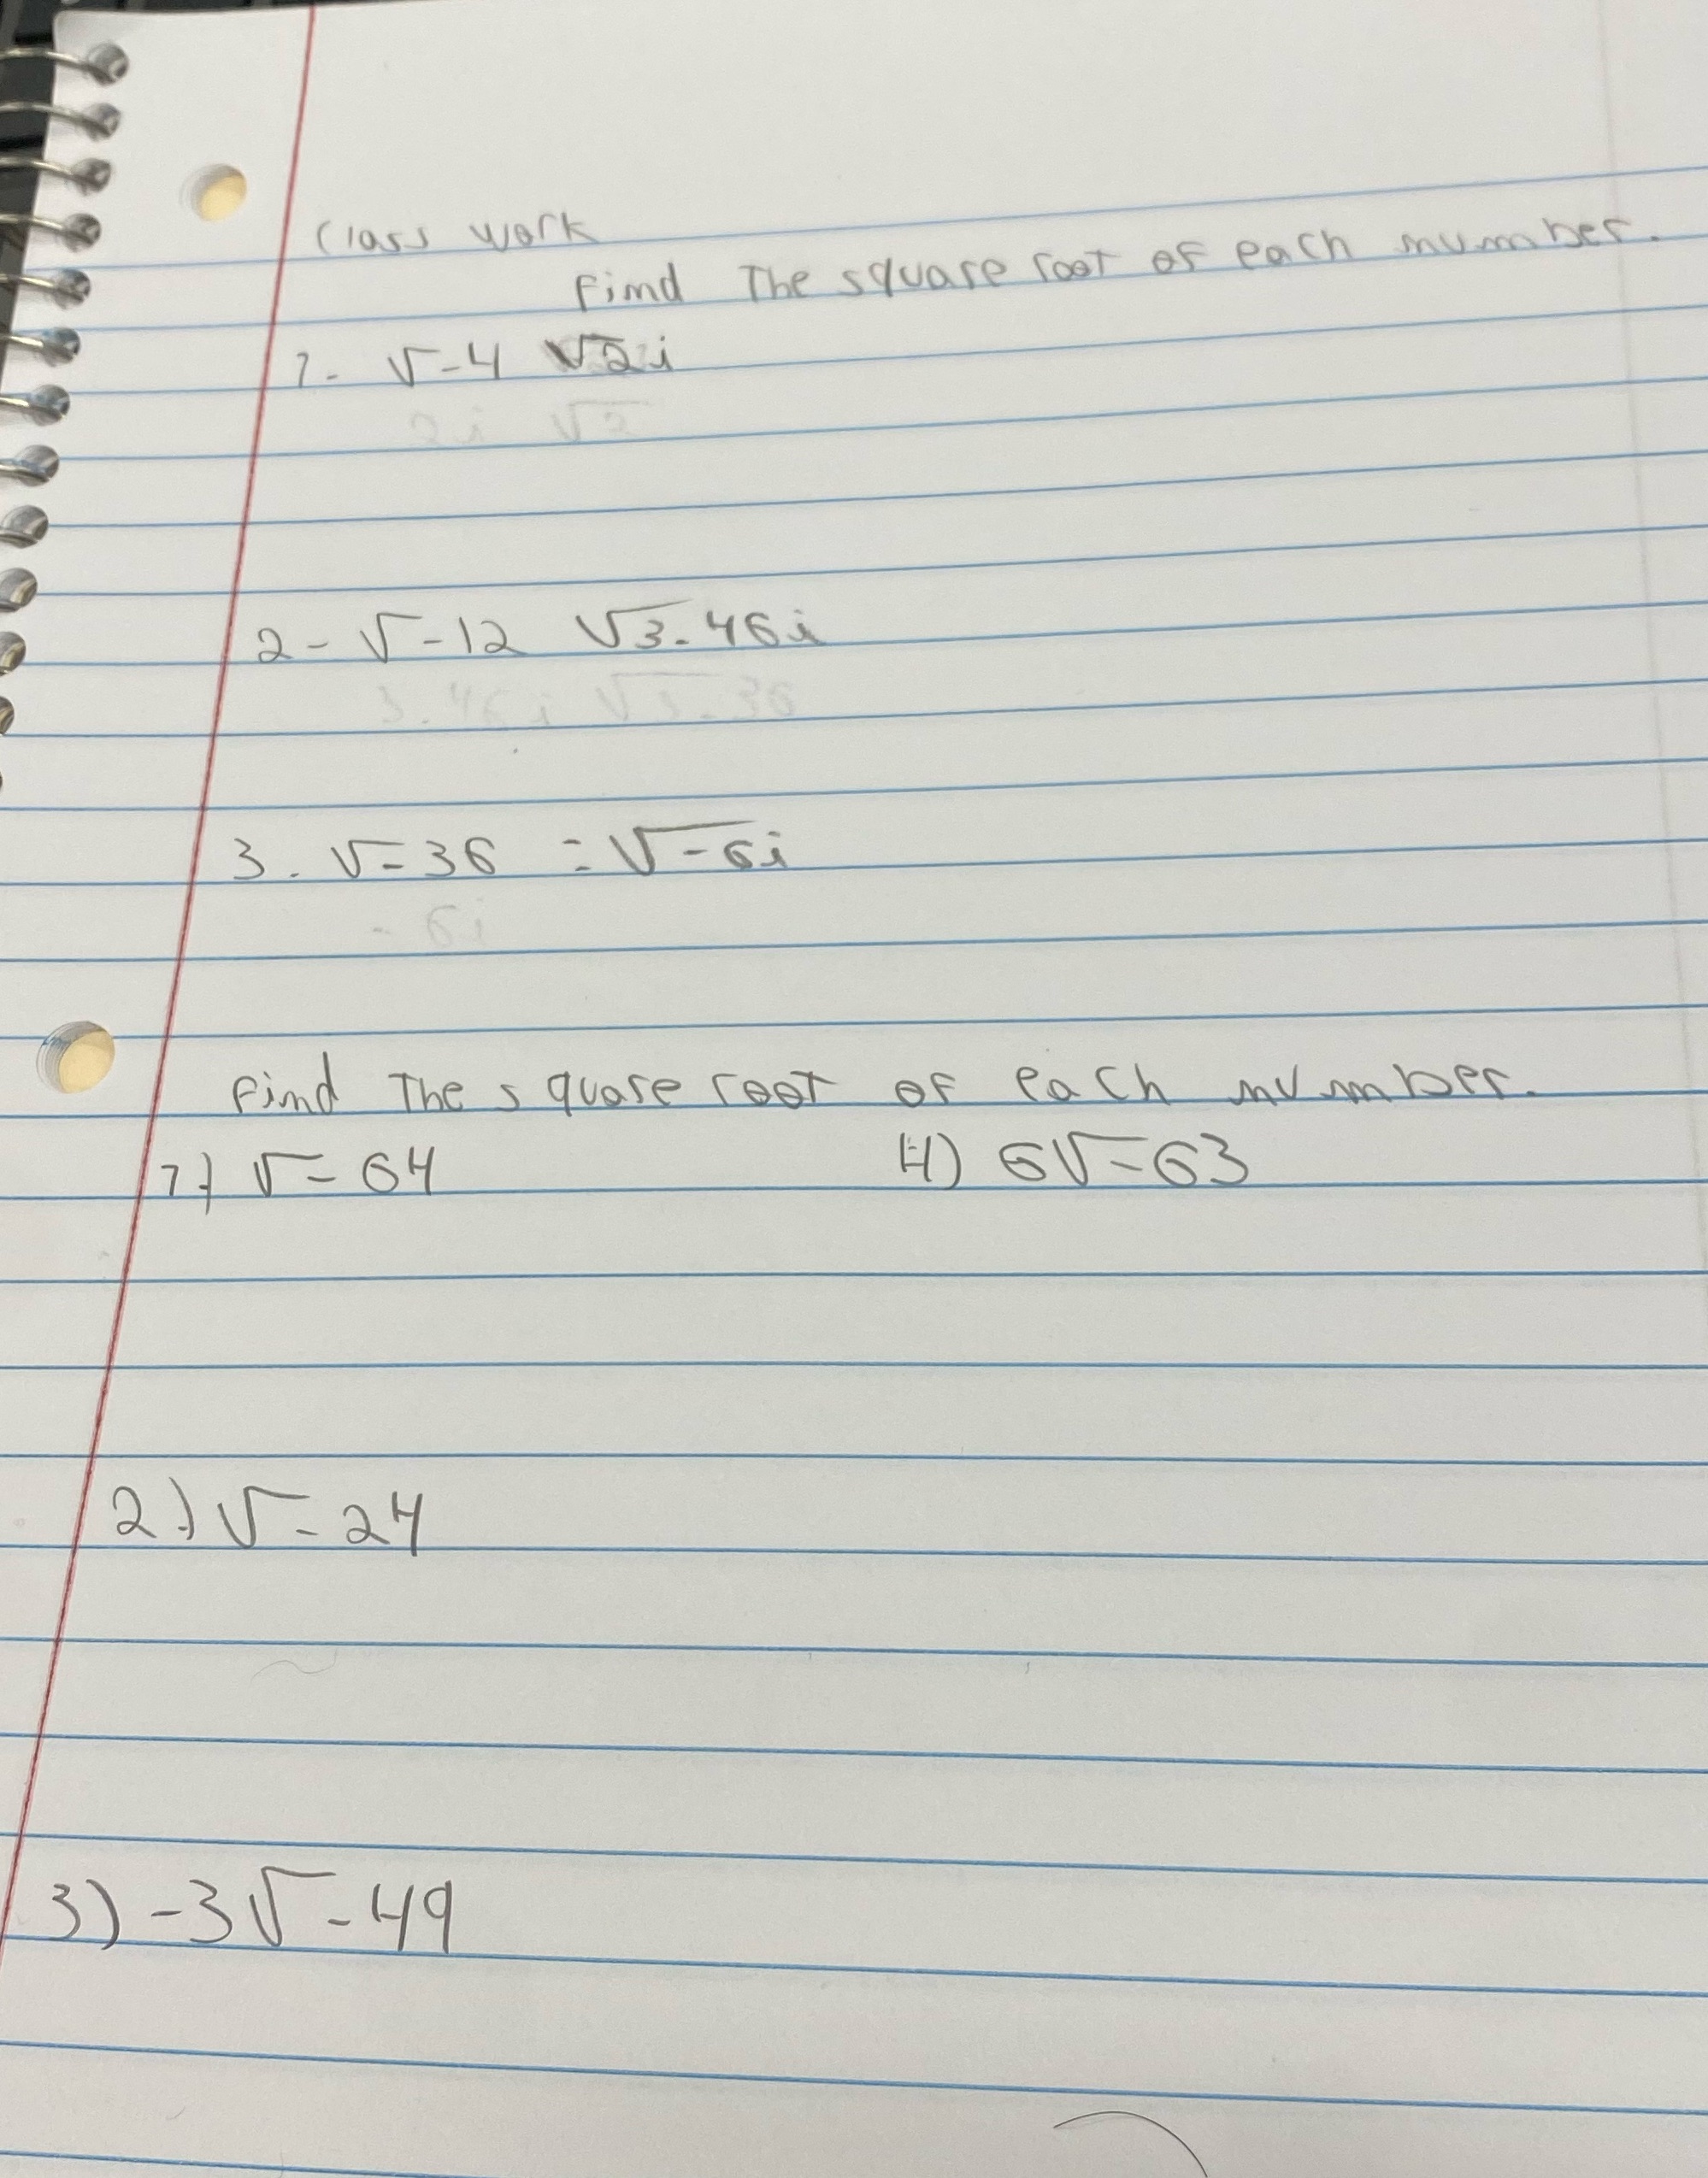 Class work
Find The square root of each number.
1- √-4 √2i
2i √2
2- √-12 √3.46i
3.46i √3.36
3. √-36 = √-6i
- 6i
Find The square root of each number.
1) √-64 4) 6√-63
2) √-24
3) -3√-49